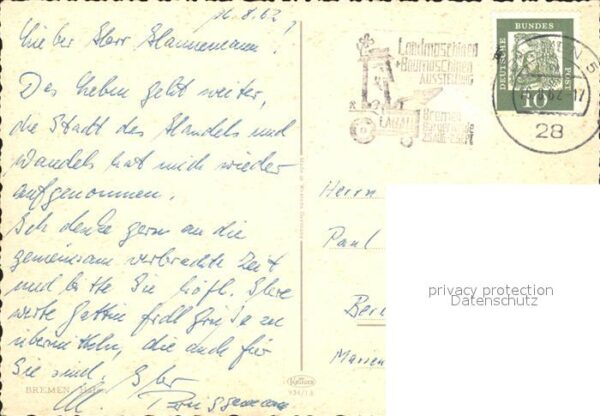 16.8.62
Lieber Herr Hannemann!
Das Leben geht weiter,
die Stadt des Handels und
Wandels hat mich wieder
aufgenommen.
Ich denke gern an die
gemeinsam verbrachte Zeit
und bitte Sie höfl. Ihre
werte Gattin frdl Grüße zu
übermitteln, die auch für
Sie sind. Ihr
BREMEN
Landmaschinen
+Baumaschinen
AUSSTELLUNG
LABAU
Bremen
Bürgerweide
28
DEUTSCHE BUNDES POST
10
Herrn
Paul
Berl
Marien
privacy protection
Datenschutz
Krüger